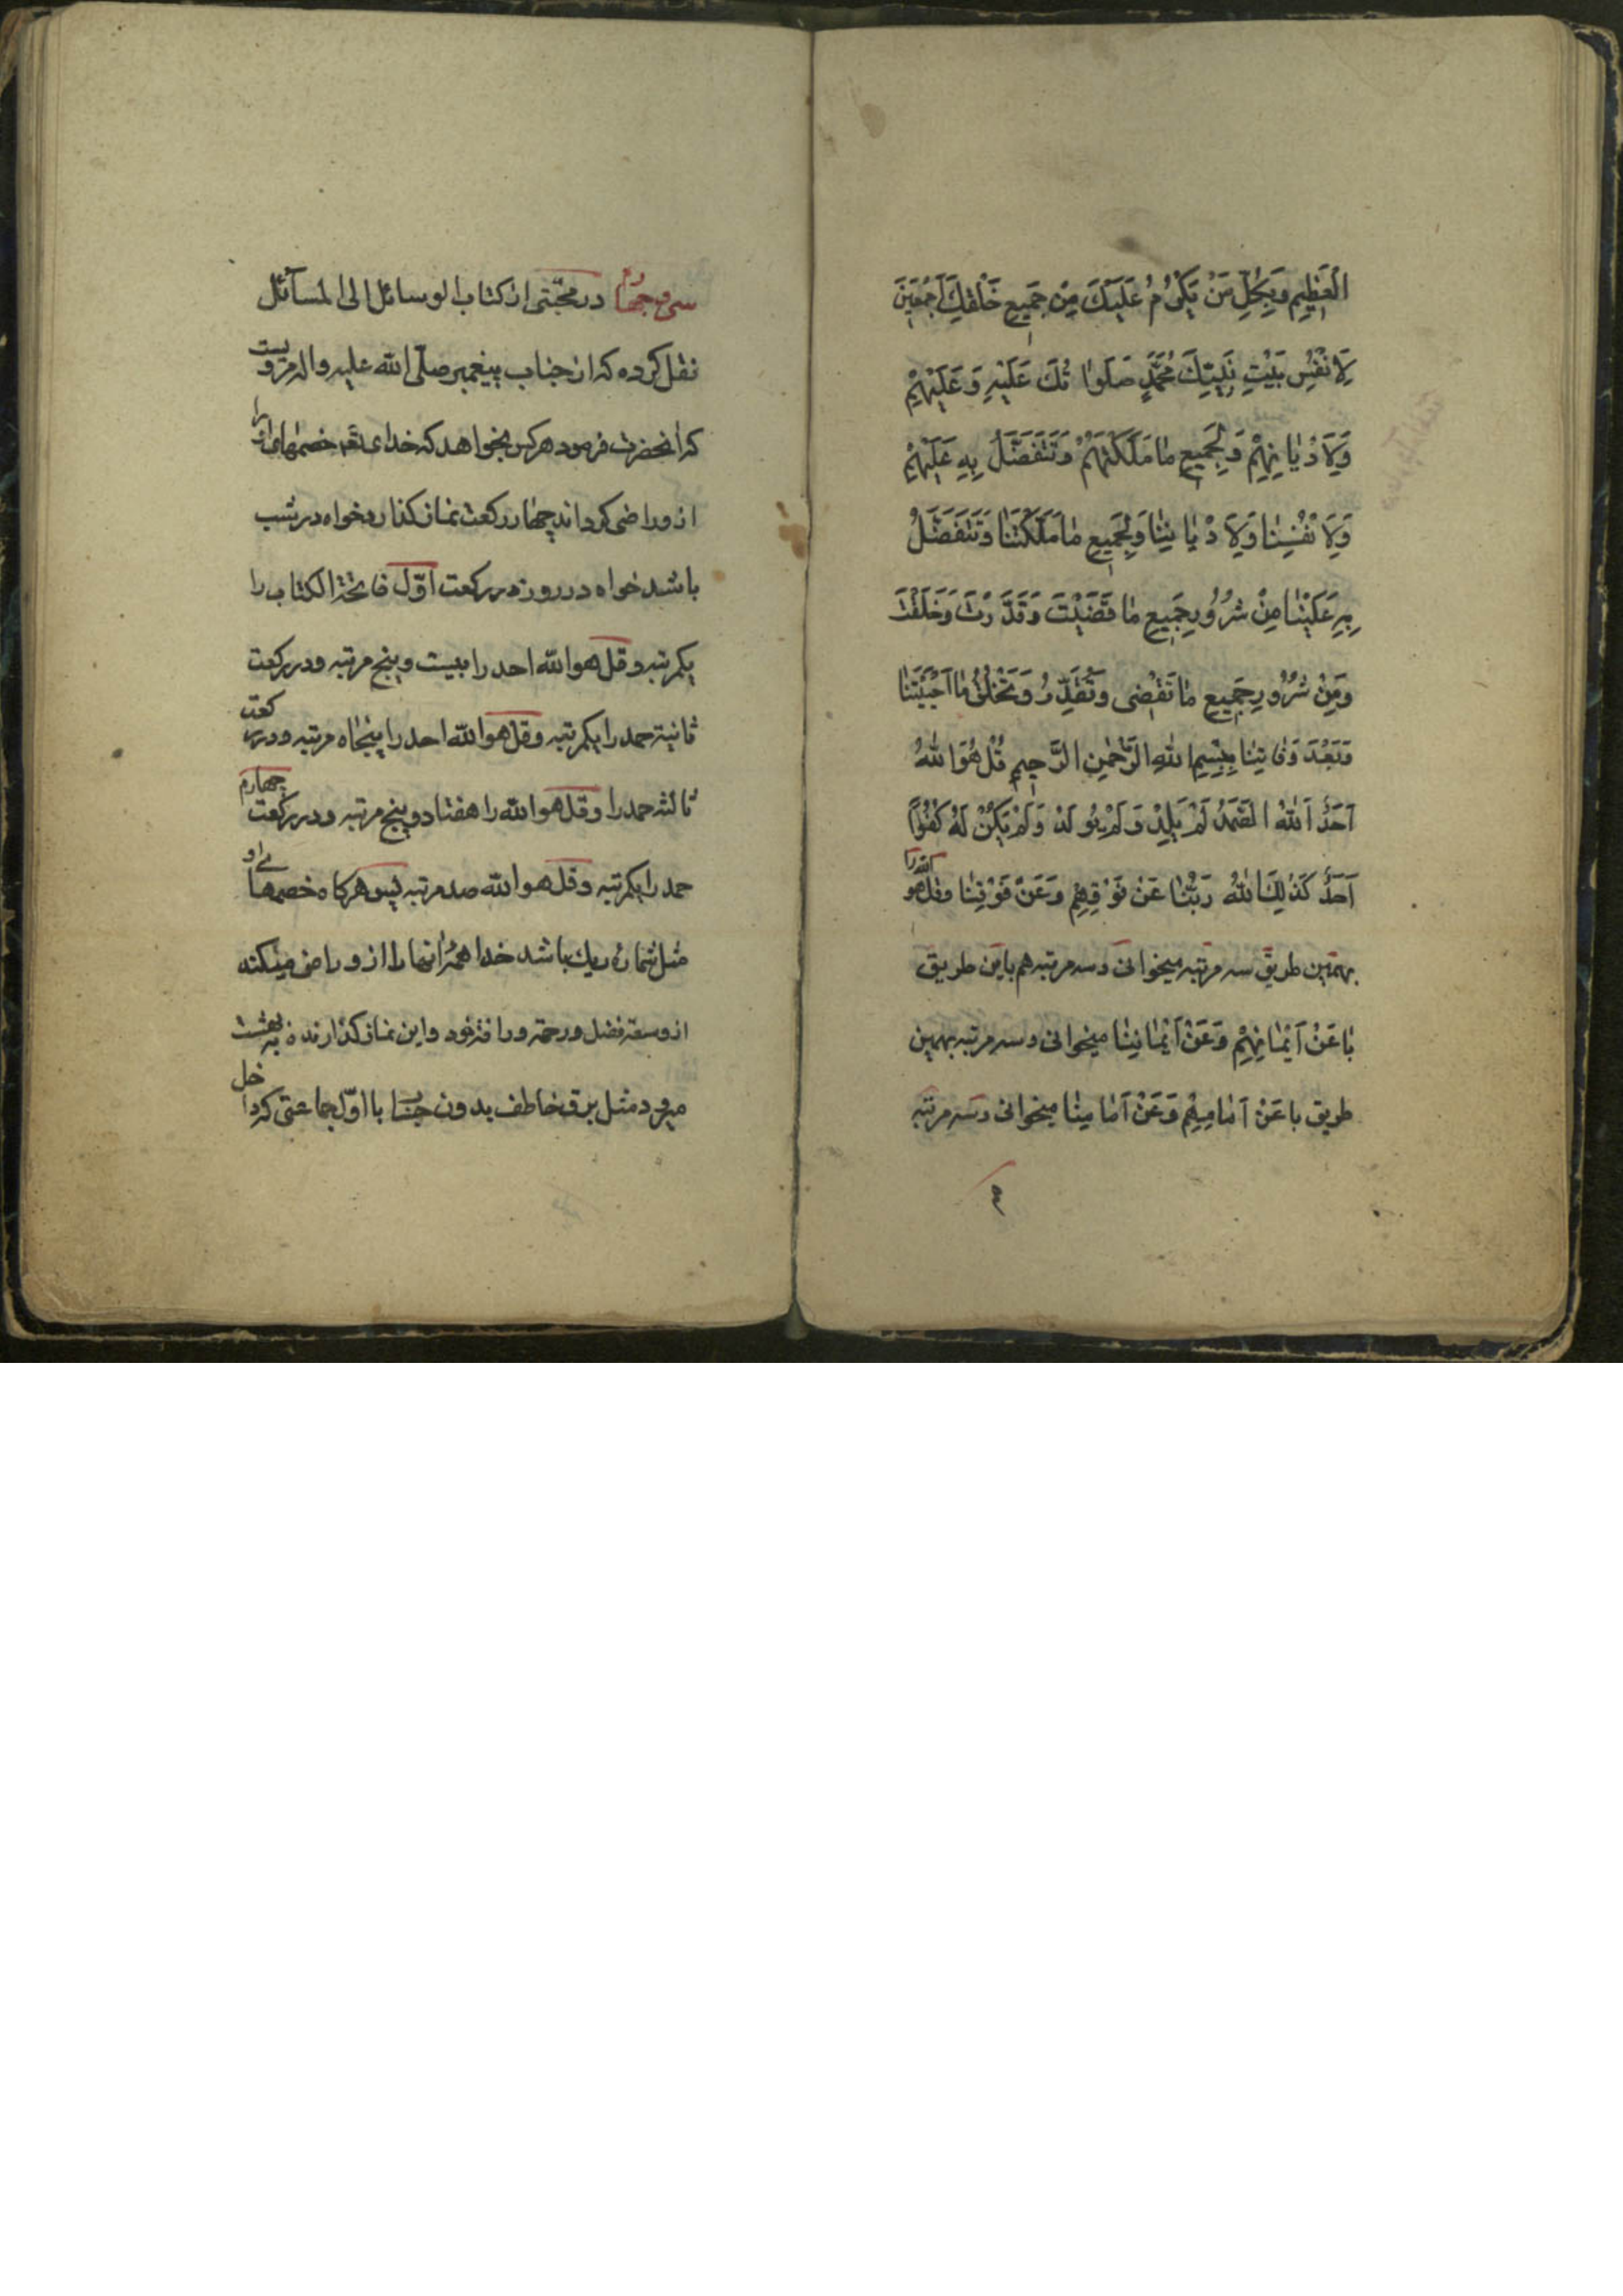 الْعَظِيمِ وَبِكُلِّ مَنْ يَكْرُمُ عَلَيْكَ مِنْ جَمِيعِ خَلْقِكَ اَجْمَعِينَ
لِاَنْفُسِ بَيْتِ نَبِيِّكَ مُحَمَّدٍ صَلَوٰاتُكَ عَلَيْهِ وَعَلَيْهِمْ
وَلِاَدْيٰانِهِمْ وَلِجَمِيعِ مٰا مَلَّكْتَهُمْ وَتَتَفَضَّلُ بِهِ عَلَيْهِمْ
وَلِاَنْفُسِنٰا وَلِاَدْيٰانِنٰا وَلِجَمِيعِ مٰا مَلَّكْتَنٰا وَتَتَفَضَّلُ
بِهِ عَلَيْنٰا مِنْ شُرُورِ جَمِيعِ مٰا قَضَيْتَ وَقَدَّرْتَ وَخَلَقْتَ
وَمِنْ شُرُورِ جَمِيعِ مٰا تَقْضِى وَتُقَدِّرُ وَتَخْلُقُ مٰا اَحْيَيْتَنٰا
وَبَعْدَ وَفٰاتِنٰا بِسْمِ اللهِ الرَّحْمٰنِ الرَّحِيمِ قُلْ هُوَ اللهُ
اَحَدٌ اَللهُ الصَّمَدُ لَمْ يَلِدْ وَلَمْ يُولَدْ وَلَمْ يَكُنْ لَهُ كُفُوًا
اَحَدٌ كَذٰلِكَ اللهُ رَبُّنٰا عَنْ فَوْقِهِمْ وَعَنْ فَوْقِنٰا وقل هو الله را
بهمين طريق سه مرتبه ميخوانى وسه مرتبه هم باين طريق
بٰا عَنْ اَيْمٰانِهِمْ وَعَنْ اَيْمٰانِنٰا ميخوانى وسه مرتبه بهمين
طريق با عَنْ اَمٰامِهِمْ وَعَنْ اَمٰامِنٰا ميخوانى وسه مرتبه
سى وچهار در مجتنى از كتاب الوسائل الى المسآئل
نقل كرده كه از جناب پيغمبر صلّى الله عليه واله مرويست
كه انحضرت فرمود هركس بخواهد كه خداى خصمهاى او را
ازو راضى كرداند چهار ركعت نماز كذارد خواه در شب
باشد خواه در روز در ركعت اوّل فاتحة الكتاب را
يكمرتبه وقل هو الله احد را بيست وپنج مرتبه ودر ركعت
ثانية حمد را يكمرتبه وقل هو الله احد را پنجاه مرتبه ودر ركعت
ثالثه حمد را وقل هو الله را هفتاد وپنج مرتبه ودر ركعت چهارم
حمد را يكمرتبه وقل هو الله صد مرتبه پس هركاه خصمهاى او
مثل شماره ريك باشد خدا همۀ انها را ازو راضى ميكند
از وسعة فضل ورحمة ورافة خود واين نماز كذارنده به بهشت
ميرود مثل برق خاطف بدون حساب با اوّل جماعتى كه داخل